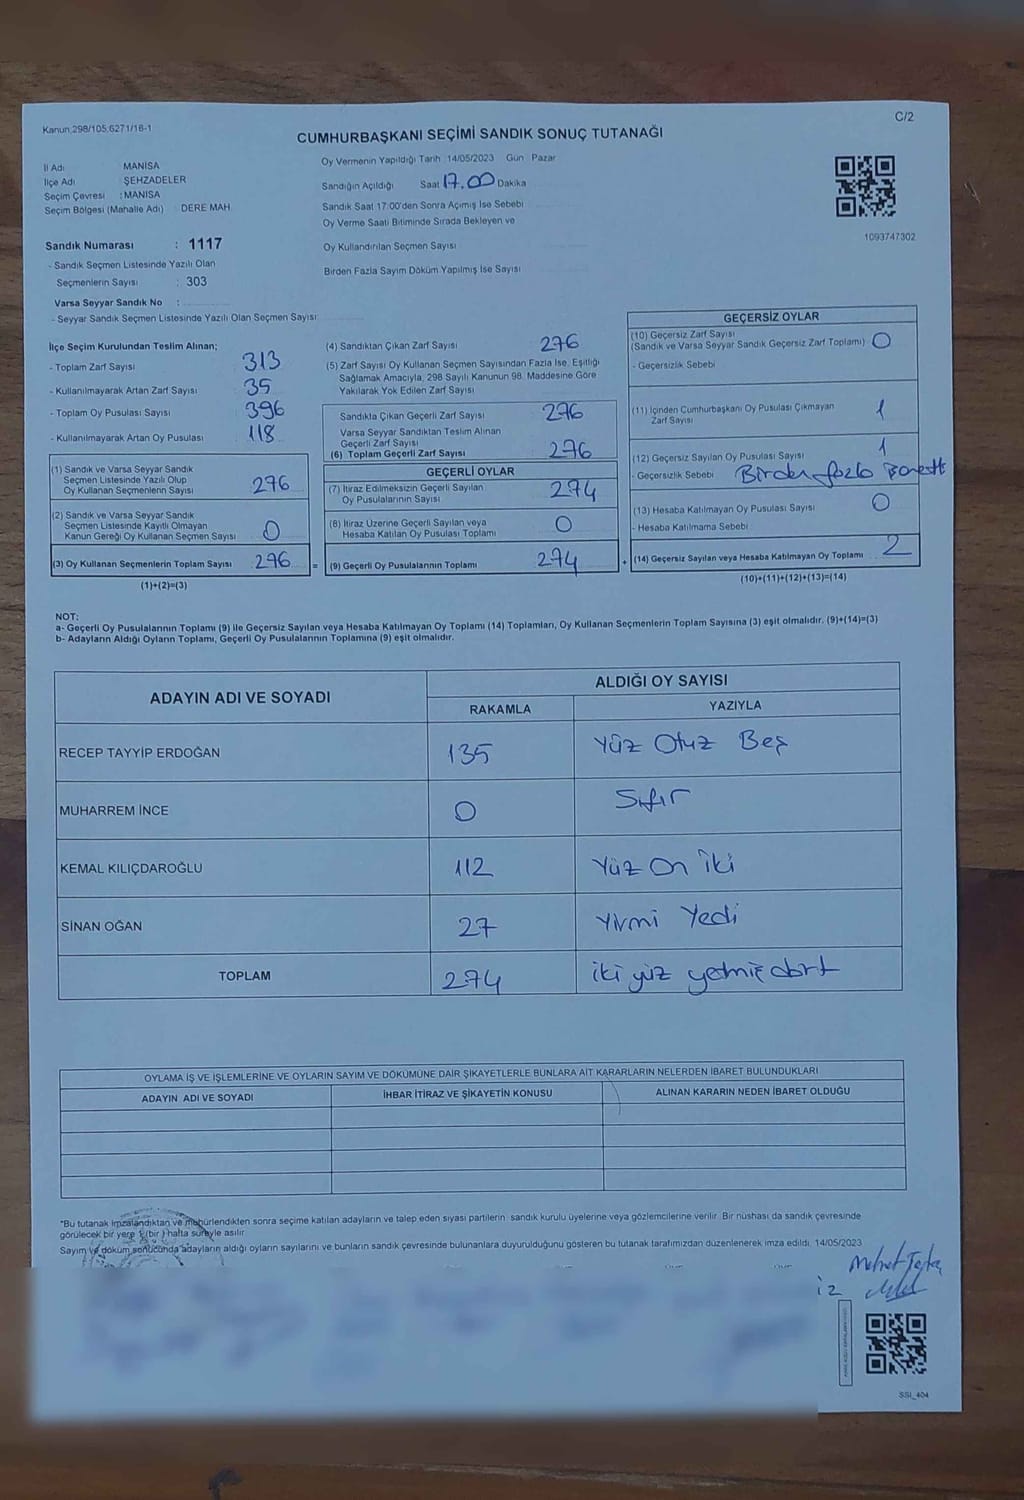 Kanun:298/105,6271/16-1
C/2
CUMHURBAŞKANI SEÇİMİ SANDIK SONUÇ TUTANAĞI
İl Adı : MANİSA
İlçe Adı ŞEHZADELER
Seçim Çevresi : MANİSA
Seçim Bölgesi (Mahalle Adı) : DERE MAH.
Sandık Numarası : 1117
- Sandık Seçmen Listesinde Yazılı Olan
Seçmenlerin Sayısı : 303
Varsa Seyyar Sandık No :
- Seyyar Sandık Seçmen Listesinde Yazılı Olan Seçmen Sayısı:
Oy Vermenin Yapıldığı Tarih :14/05/2023 Gün : Pazar
Sandığın Açıldığı Saat 17.00 Dakika
Sandık Saat 17:00'den Sonra Açımış İse Sebebi
Oy Verme Saati Bitiminde Sırada Bekleyen ve
Oy Kullandırılan Seçmen Sayısı
Birden Fazla Sayım Döküm Yapılmış İse Sayısı
1093747302
İlçe Seçim Kurulundan Teslim Alınan;
- Toplam Zarf Sayısı 313
- Kullanılmayarak Artan Zarf Sayısı 35
- Toplam Oy Pusulası Sayısı 396
- Kullanılmayarak Artan Oy Pusulası 118
(1) Sandık ve Varsa Seyyar Sandık
Seçmen Listesinde Yazılı Olup
Oy Kullanan Seçmenlerin Sayısı 276
(2) Sandık ve Varsa Seyyar Sandık
Seçmen Listesinde Kayıtlı Olmayan
Kanun Gereği Oy Kullanan Seçmen Sayısı 0
(3) Oy Kullanan Seçmenlerin Toplam Sayısı 276 =
(1)+(2)=(3)
(4) Sandıktan Çıkan Zarf Sayısı 276
(5) Zarf Sayısı Oy Kullanan Seçmen Sayısından Fazla İse, Eşitliği
Sağlamak Amacıyla, 298 Sayılı Kanunun 98. Maddesine Göre
Yakılarak Yok Edilen Zarf Sayısı
Sandıkta Çıkan Geçerli Zarf Sayısı 276
Varsa Seyyar Sandıktan Teslim Alınan
Geçerli Zarf Sayısı
(6) Toplam Geçerli Zarf Sayısı 276
GEÇERLİ OYLAR
(7) İtiraz Edilmeksizin Geçerli Sayılan
Oy Pusulalarının Sayısı 274
(8) İtiraz Üzerine Geçerli Sayılan veya
Hesaba Katılan Oy Pusulası Toplamı 0
(9) Geçerli Oy Pusulalarının Toplamı 274 +
GEÇERSİZ OYLAR
(10) Geçersiz Zarf Sayısı
(Sandık ve Varsa Seyyar Sandık Geçersiz Zarf Toplamı) 0
- Geçersizlik Sebebi
(11) İçinden Cumhurbaşkanı Oy Pusulası Çıkmayan
Zarf Sayısı 1
(12) Geçersiz Sayılan Oy Pusulası Sayısı 1
- Geçersizlik Sebebi Birden fazla
(13) Hesaba Katılmayan Oy Pusulası Sayısı 0
- Hesaba Katılmama Sebebi
(14) Geçersiz Sayılan veya Hesaba Katılmayan Oy Toplamı 2
(10)+(11)+(12)+(13)=(14)
NOT:
a- Geçerli Oy Pusulalarının Toplamı (9) ile Geçersiz Sayılan veya Hesaba Katılmayan Oy Toplamı (14) Toplamları, Oy Kullanan Seçmenlerin Toplam Sayısına (3) eşit olmalıdır. (9)+(14)=(3)
b- Adayların Aldığı Oyların Toplamı, Geçerli Oy Pusulalarının Toplamına (9) eşit olmalıdır.
ADAYIN ADI VE SOYADI ALDIĞI OY SAYISI
RAKAMLA YAZIYLA
RECEP TAYYİP ERDOĞAN 135 Yüz Otuz Beş
MUHARREM İNCE 0 Sıfır
KEMAL KILIÇDAROĞLU 112 Yüz On İki
SİNAN OĞAN 27 Yirmi Yedi
TOPLAM 274 iki yüz yetmiş dört
OYLAMA İŞ VE İŞLEMLERİNE VE OYLARIN SAYIM VE DÖKÜMÜNE DAİR ŞİKAYETLERLE BUNLARA AİT KARARLARIN NELERDEN İBARET BULUNDUKLARI
ADAYIN ADI VE SOYADI İHBAR İTİRAZ VE ŞİKAYETİN KONUSU ALINAN KARARIN NEDEN İBARET OLDUĞU
*Bu tutanak imzalandıktan ve mühürlendikten sonra seçime katılan adayların ve talep eden siyasi partilerin sandık kurulu üyelerine veya gözlemcilerine verilir. Bir nüshası da sandık çevresinde
görülecek bir yere 1 (bir ) hafta süreyle asılır.
Sayım ve döküm sonucunda adayların aldığı oyların sayılarını ve bunların sandık çevresinde bulunanlara duyurulduğunu gösteren bu tutanak tarafımızdan düzenlenerek imza edildi. 14/05/2023
SSI_404